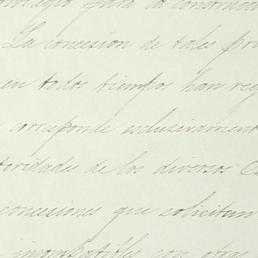 para la construcci
La concesion de tales pri
en todos tiempos han reg
corresponde esclusivament
toridades de los diversos
concesiones que solicitan
con otras